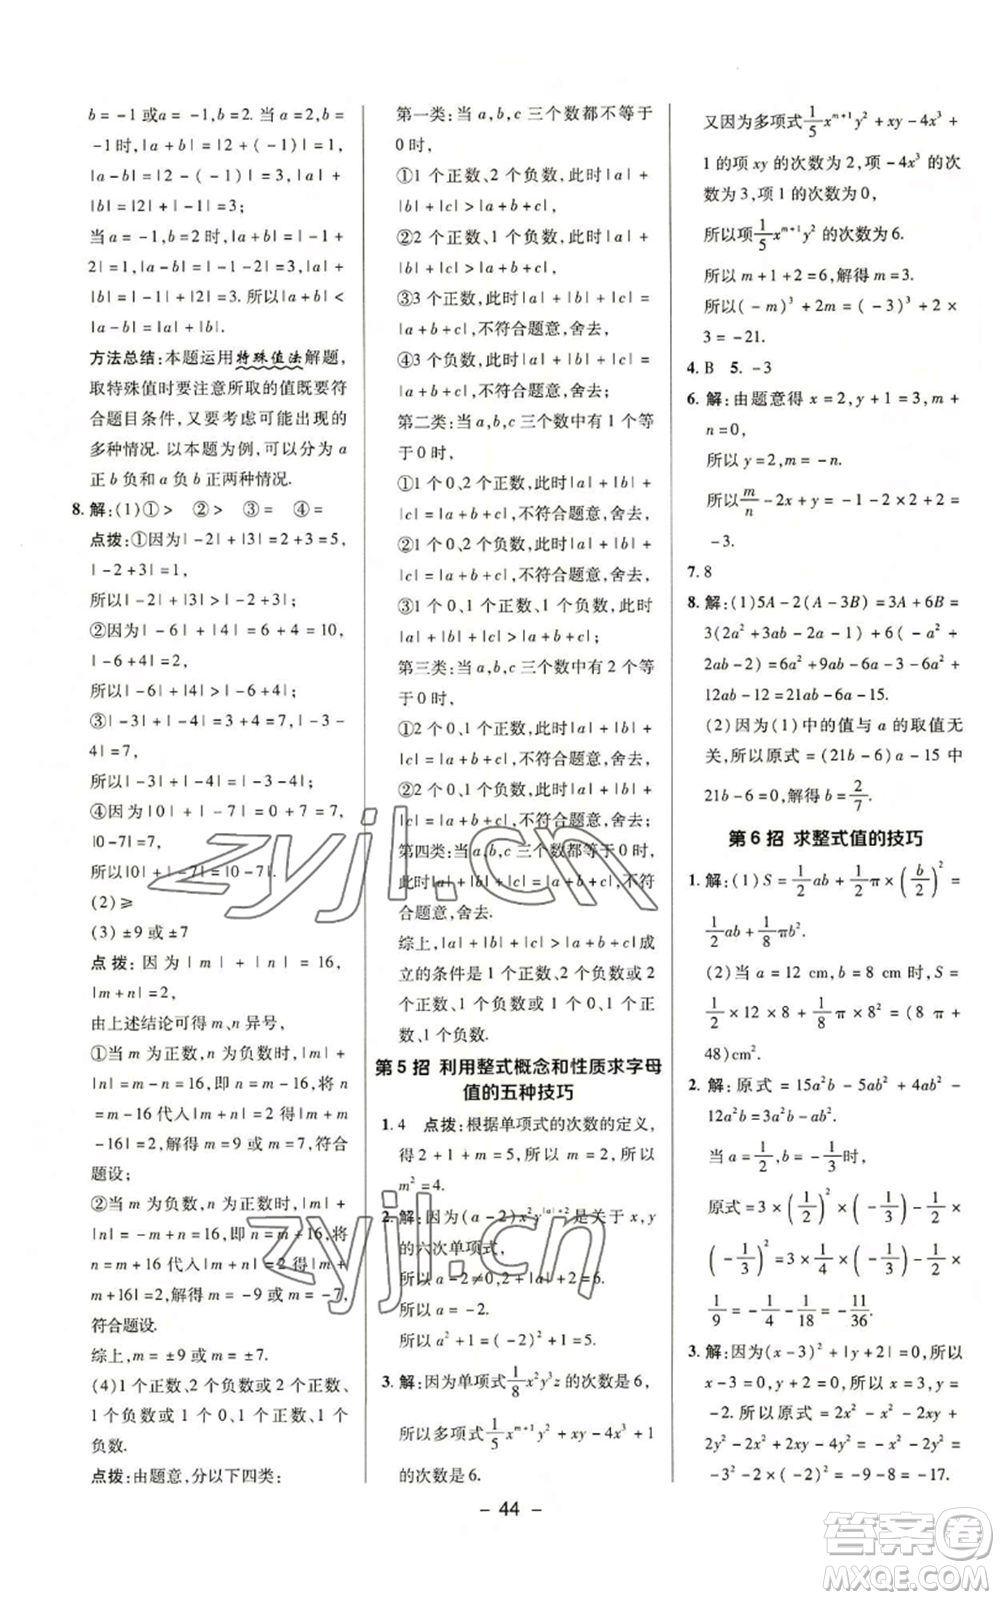 b = -1 或a = -1,b = 2. 当 a = 2,b =
-1时,|a + b| = |2 + ( -1)| = 1;
|a - b| = |2 - ( -1)| = 3;|a| +
|b| = |2| + | -1| = 3;
当 a = -1,b = 2 时,|a + b| = | -1 +
2| = 1;|a - b| = | -1 - 2| = 3;|a| +
|b| = | -1| + |2| = 3. 所以|a + b| <
|a - b| = |a| + |b|.
方法总结:本题运用特殊值法解题,
取特殊值时要注意所取的值既要符
合题目条件,又要考虑可能出现的
多种情况. 以本题为例,可以分为 a
正 b 负和 a 负 b 正两种情况.
8. 解:(1)①> ②> ③= ④=
点拨:①因为| -2| + |3| = 5,
| -2 + 3| = 1,
所以| -2| + |3| > | -2 + 3|;
②因为| -6| + |4| = 6 + 4 = 10,
| -6 + 4| = 2,
所以| -6| + |4| > | -6 + 4|;
③| -3| + | -4| = 3 + 4 = 7,| -3 +
( -4)| = 7,
所以| -3| + | -4| = | -3 + ( -4)|;
④因为|0| + | -7| = 0 + 7 = 7,
|0 - 7| = 7,
所以|0| + | -7| = |0 - 7|.
(2)≥
(3) ±9 或 ±7
点拨:因为 |m| + |n| = 16,
|m + n| = 2,
由上述结论可得 m、n 异号,
①当 m 为正数,n 为负数时,
|m| + |n| = m - n = 16,即 n =
m - 16 代入|m + n| = 2 得|m + m
- 16| = 2,解得 m = 9 或 m = 7,符合
题设;
②当 m 为负数,n 为正数时,|m| +
|n| = -m + n = 16,即 m + n = 16,将
n = m + 16 代入|m + n| = 2 得|m +
m + 16| = 2,解得 m = -9 或 m = -7,
符合题设.
综上,m = ±9 或 ±7.
(4)1 个正数、2 个负数或 2 个正
数、1 个负数或 1 个 0、1 个正数、1 个
负数.
点拨:由题意,分以下四类:
第一类:当 a,b,c 三个数都不等于
0 时,
①1 个正数、2 个负数,此时|a| +
|b| + |c| > |a + b + c|,
②2 个正数、1 个负数,此时|a| +
|b| + |c| > |a + b + c|,
③3 个正数,此时|a| + |b| + |c| =
|a + b + c|,不符合题意,舍去,
④3 个负数,此时|a| + |b| + |c| =
|a + b + c|,不符合题意,舍去;
第二类:当 a,b,c 三个数中有 1 个等
于 0 时,
①1 个 0、2 个正数,此时|a| + |b| +
|c| = |a + b + c|,不符合题意,舍去,
②1 个 0、2 个负数,此时|a| + |b| +
|c| = |a + b + c|,不符合题意,舍去,
③1 个 0、1 个正数、1 个负数,此时
|a| + |b| + |c| > |a + b + c|;
第三类:当 a,b,c 三个数中有 2 个等
于 0 时,
①2 个 0、1 个正数,此时|a| + |b| +
|c| = |a + b + c|,不符合题意,舍去,
②2 个 0、1 个负数,此时|a| + |b| +
|c| = |a + b + c|,不符合题意,舍去;
第四类:当 a,b,c 三个数都为 0 时,
此时|a| + |b| + |c| = |a + b + c|,不符
合题意,舍去.
综上,|a| + |b| + |c| > |a + b + c|成
立的条件是 1 个正数、2 个负数或 2
个正数、1 个负数或 1 个 0、1 个正
数、1 个负数.
第 5 招 利用整式概念和性质求字母
值的五种技巧
1. 4 点拨:根据单项式的次数的定义,
得 2 + 1 + m = 5,所以 m = 2,所以
m² = 4.
2. 解:因为(a - 2)x²y^{|a|+2}是关于 x,y
的六次单项式,
所以 a - 2≠0,2 + |a| + 2 = 6.
所以 a = -2.
所以 a² + 1 = ( -2)² + 1 = 5.
3. 解:因为单项式\frac{1}{8}x²y³z 的次数是 6,
所以多项式\frac{1}{5}x^{m+1}y² + xy - 4x³ + 1
的次数是 6.
又因为多项式\frac{1}{5}x^{m+1}y² + xy - 4x³ +
1 的项 xy 的次数为 2,项 -4x³ 的次
数为 3,项 1 的次数为 0,
所以项\frac{1}{5}x^{m+1}y² 的次数为 6.
所以 m + 1 + 2 = 6,解得 m = 3.
所以( -m)³ + 2m = ( -3)³ + 2 ×
3 = -21.
4. B 5. -3
6. 解:由题意得 x = 2,y + 1 = 3,m +
n = 0,
所以 y = 2,m = -n.
所以\frac{m}{n} - 2x + y = -1 - 2×2 + 2 =
-3.
7. 8
8. 解:(1)5A - 2(A - 3B) = 3A + 6B =
3(2a² + 3ab - 2a - 1) + 6( -a² +
2ab - 2) = 6a² + 9ab - 6a - 3 - 6a² +
12ab - 12 = 21ab - 6a - 15.
(2)因为(1)中的值与 a 的取值无
关,所以原式 = (21b - 6)a - 15 中
21b - 6 = 0,解得 b = \frac{2}{7}.
第 6 招 求整式值的技巧
1. 解:(1)S = \frac{1}{2}ab + \frac{1}{2}π×(\frac{b}{2})² =
\frac{1}{2}ab + \frac{1}{8}πb².
(2)当 a = 12 cm,b = 8 cm时,S =
\frac{1}{2} × 12 × 8 + \frac{1}{8} π × 8² = (8π +
48)cm².
2. 解:原式 = 15a²b - 5ab² + 4ab² -
12a²b = 3a²b - ab².
当 a = \frac{1}{2},b = -\frac{1}{3}时,
原式 = 3 × (\frac{1}{2})² × (-\frac{1}{3}) - \frac{1}{2} ×
(-\frac{1}{3})² = 3 × \frac{1}{4} × (-\frac{1}{3}) - \frac{1}{2} ×
\frac{1}{9} = -\frac{1}{4} - \frac{1}{18} = -\frac{11}{36}.
3. 解:因为(x - 3)² + |y + 2| = 0,所以
x - 3 = 0,y + 2 = 0,所以 x = 3,y =
-2. 所以原式 = 2x² + 2y - 2xy +
2y² - 3x² - 2y² = -x² + 2y - 2xy =
-3² - 2×2 - 2×3×( -2)
- 44 -
zyjl.cn
zyjl.cn
答案圈
MXQE.COM